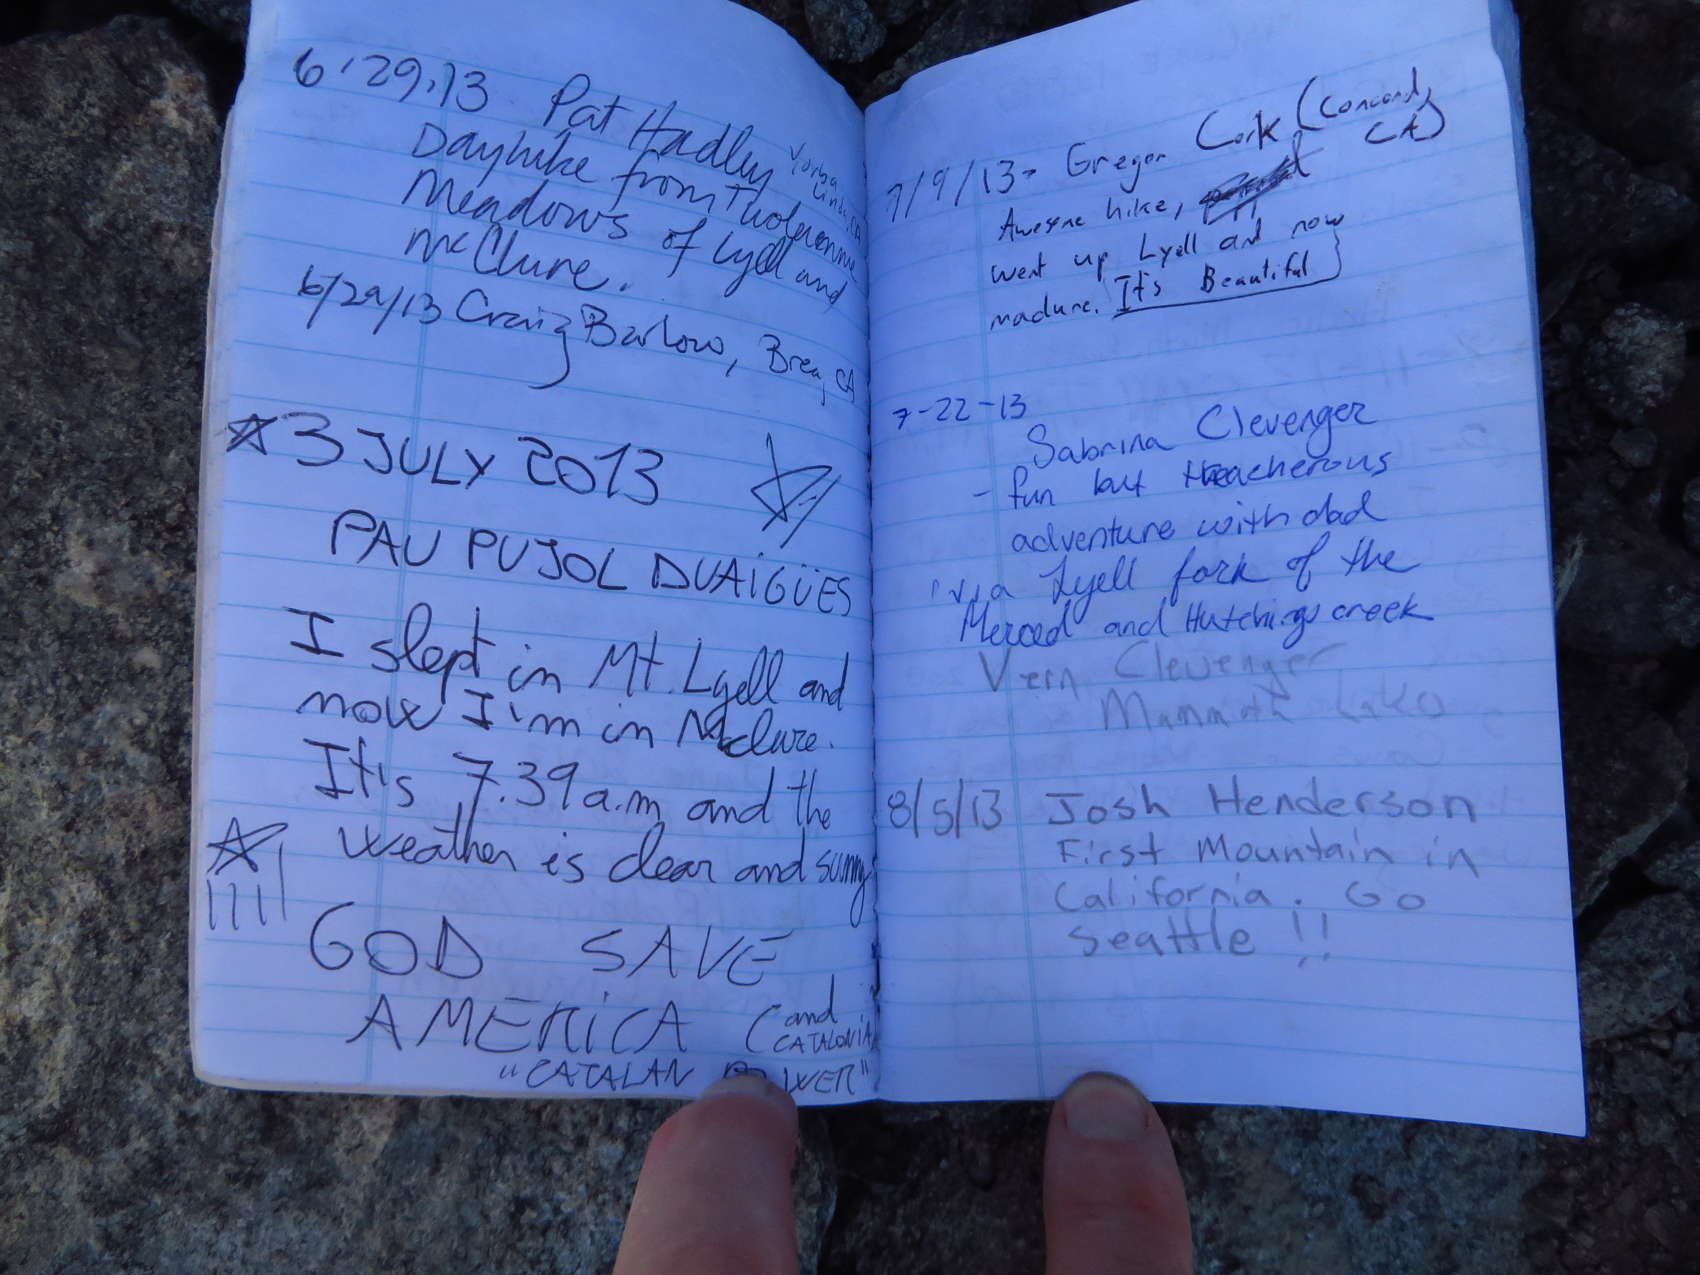 6.29.13 Pat Hadley Yorba
Linda, CA
Dayhike from Tuolemnne
Meadows of Lyell and
McClure.
6/29/13 Craig Barlow, Brea, CA
☆3 JULY 2013
PAU PUJOL DUAiGÜES
I slept in Mt. Lyell and
now I'm in Mclure.
It's 7.39 a.m and the
weather is clear and sunny
GOD SAVE
AMERiCA (and
CATALONiA
"CATALAN POWER"
7/9/13- Gregor Cork (Concord,
CA)
Awesome hike,
went up Lyell and now
maclure. It's Beautiful
7-22-13
Sabrina Clevenger
- fun but treacherous
adventure with dad
via Lyell fork of the
Merced and Hutchings creek
Vern Clevenger
Mammoth Lakes
8/5/13 Josh Henderson
First Mountain in
California. Go
Seattle !!